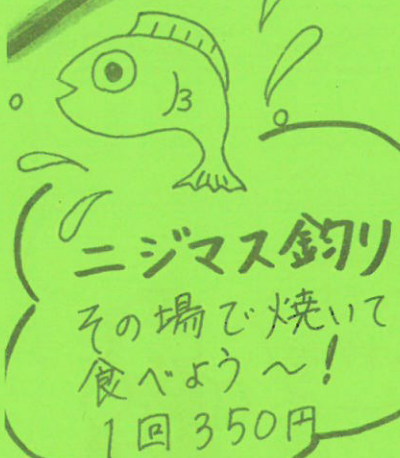 ニジマス釣り
その場で焼いて
食べよう〜!
1回350円